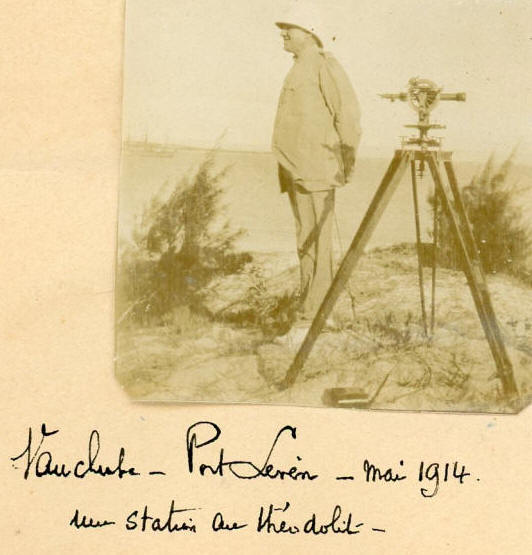 Vaucluse - Port Leven - mai 1914.
une station au théodolite -